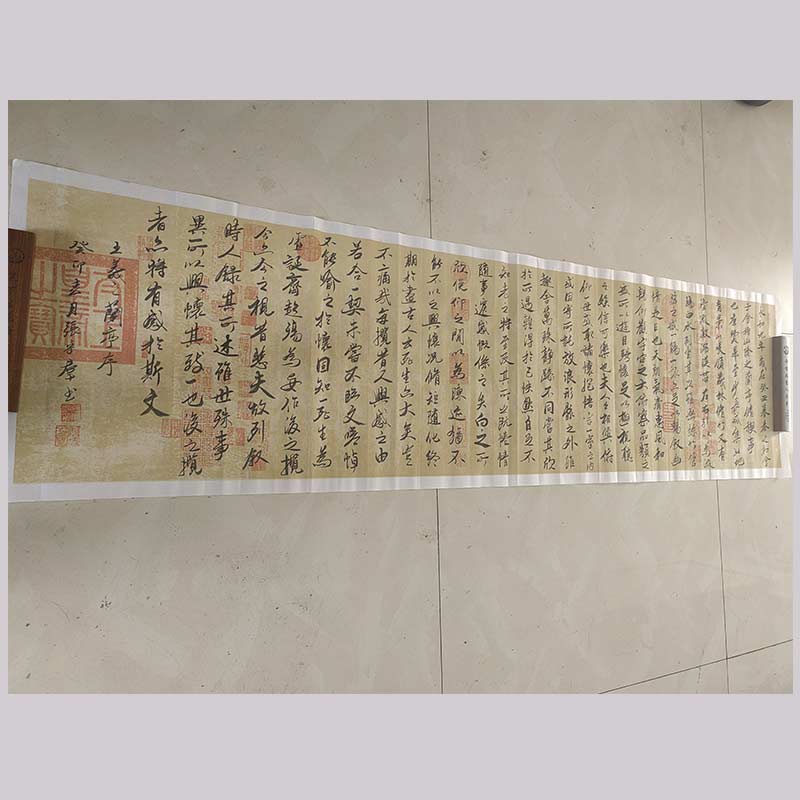 永和九年歲在癸丑暮春之初會
于會稽山陰之蘭亭脩禊事
也羣賢畢至少長咸集此地
有崇山峻領茂林脩竹又有
清流激湍暎帶左右引以為流
觴曲水列坐其次雖無絲竹管
弦之盛一觴一詠亦足以暢敘幽
情是日也天朗氣清惠風和
暢仰觀宇宙之大俯察品類之
盛所以遊目騁懷足以極視聽
之娛信可樂也夫人之相與俯
仰一世或取諸懷抱悟言一室之內
或因寄所託放浪形骸之外雖
趣舍萬殊靜躁不同當其欣
於所遇蹔得於己快然自足不
知老之將至及其所之既惓情
隨事遷感慨係之矣向之所
欣俛仰之閒以為陳迹猶不
能不以之興懷況脩短隨化終
期於盡古人云死生亦大矣豈
不痛哉每攬昔人興感之由
若合一契未嘗不臨文嗟悼
不能喻之於懷固知一死生為
虛誕齊彭殤為妄作後之攬
今亦今之視昔悲夫故列敘
時人錄其所述雖世殊事
異所以興懷其致一也後之攬
者亦將有感於斯文
王羲之蘭亭序
癸卯春月張書